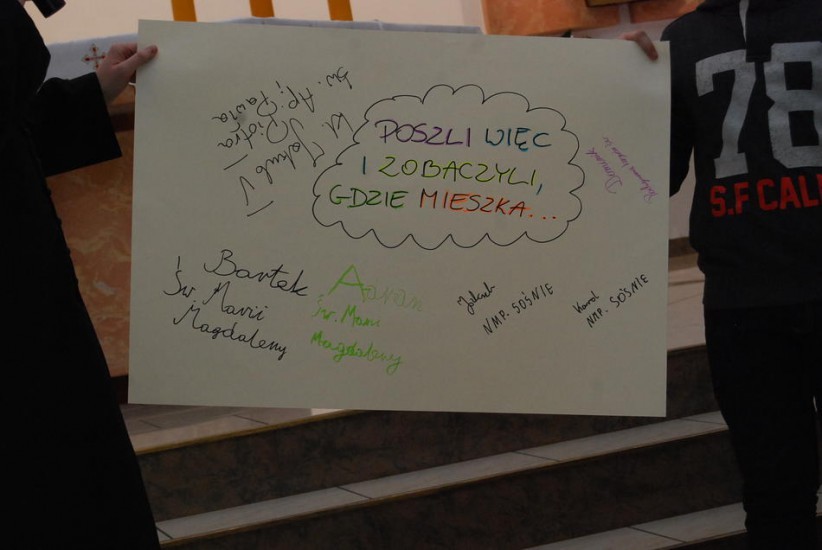 POSZLI WIĘC
I ZOBACZYLI,
GDZIE MIESZKA...
św. Ap.
Piotra i
Pawła
kl. V
Jakub
Dominik
Bartek
Św. Marii
Magdaleny
Aaron
św. Marii
Magdaleny
Jakub
NMP. SOŚNIE
Karol
NMP. SOŚNIE
78
S.F CALI